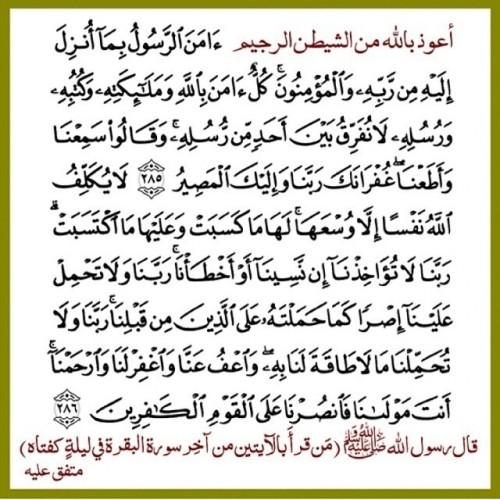 أعوذ بالله من الشيطن الرجيم ءَامَنَ ٱلرَّسُولُ بِمَآ أُنزِلَ
إِلَيْهِ مِن رَّبِّهِۦ وَٱلْمُؤْمِنُونَۚ كُلٌّ ءَامَنَ بِٱللَّهِ وَمَلَٰٓئِكَتِهِۦ وَكُتُبِهِۦ
وَرُسُلِهِۦ لَا نُفَرِّقُ بَيْنَ أَحَدٍ مِّن رُّسُلِهِۦۚ وَقَالُوا۟ سَمِعْنَا
وَأَطَعْنَاۖ غُفْرَانَكَ رَبَّنَا وَإِلَيْكَ ٱلْمَصِيرُ ٢٨٥ لَا يُكَلِّفُ
ٱللَّهُ نَفْسًا إِلَّا وُسْعَهَاۚ لَهَا مَا كَسَبَتْ وَعَلَيْهَا مَا ٱكْتَسَبَتْۗ
رَبَّنَا لَا تُؤَاخِذْنَآ إِن نَّسِينَآ أَوْ أَخْطَأْنَاۚ رَبَّنَا وَلَا تَحْمِلْ
عَلَيْنَآ إِصْرًا كَمَا حَمَلْتَهُۥ عَلَى ٱلَّذِينَ مِن قَبْلِنَاۚ رَبَّنَا وَلَا
تُحَمِّلْنَا مَا لَا طَاقَةَ لَنَا بِهِۦۖ وَٱعْفُ عَنَّا وَٱغْفِرْ لَنَا وَٱرْحَمْنَآۚ
أَنتَ مَوْلَىٰنَا فَٱنصُرْنَا عَلَى ٱلْقَوْمِ ٱلْكَٰفِرِينَ ٢٨٦
قال رسول الله ﷺ (مَن قرأ بالآيتين من آخِر سورة البقرة في ليلةٍ كفتاه)
متفق عليه